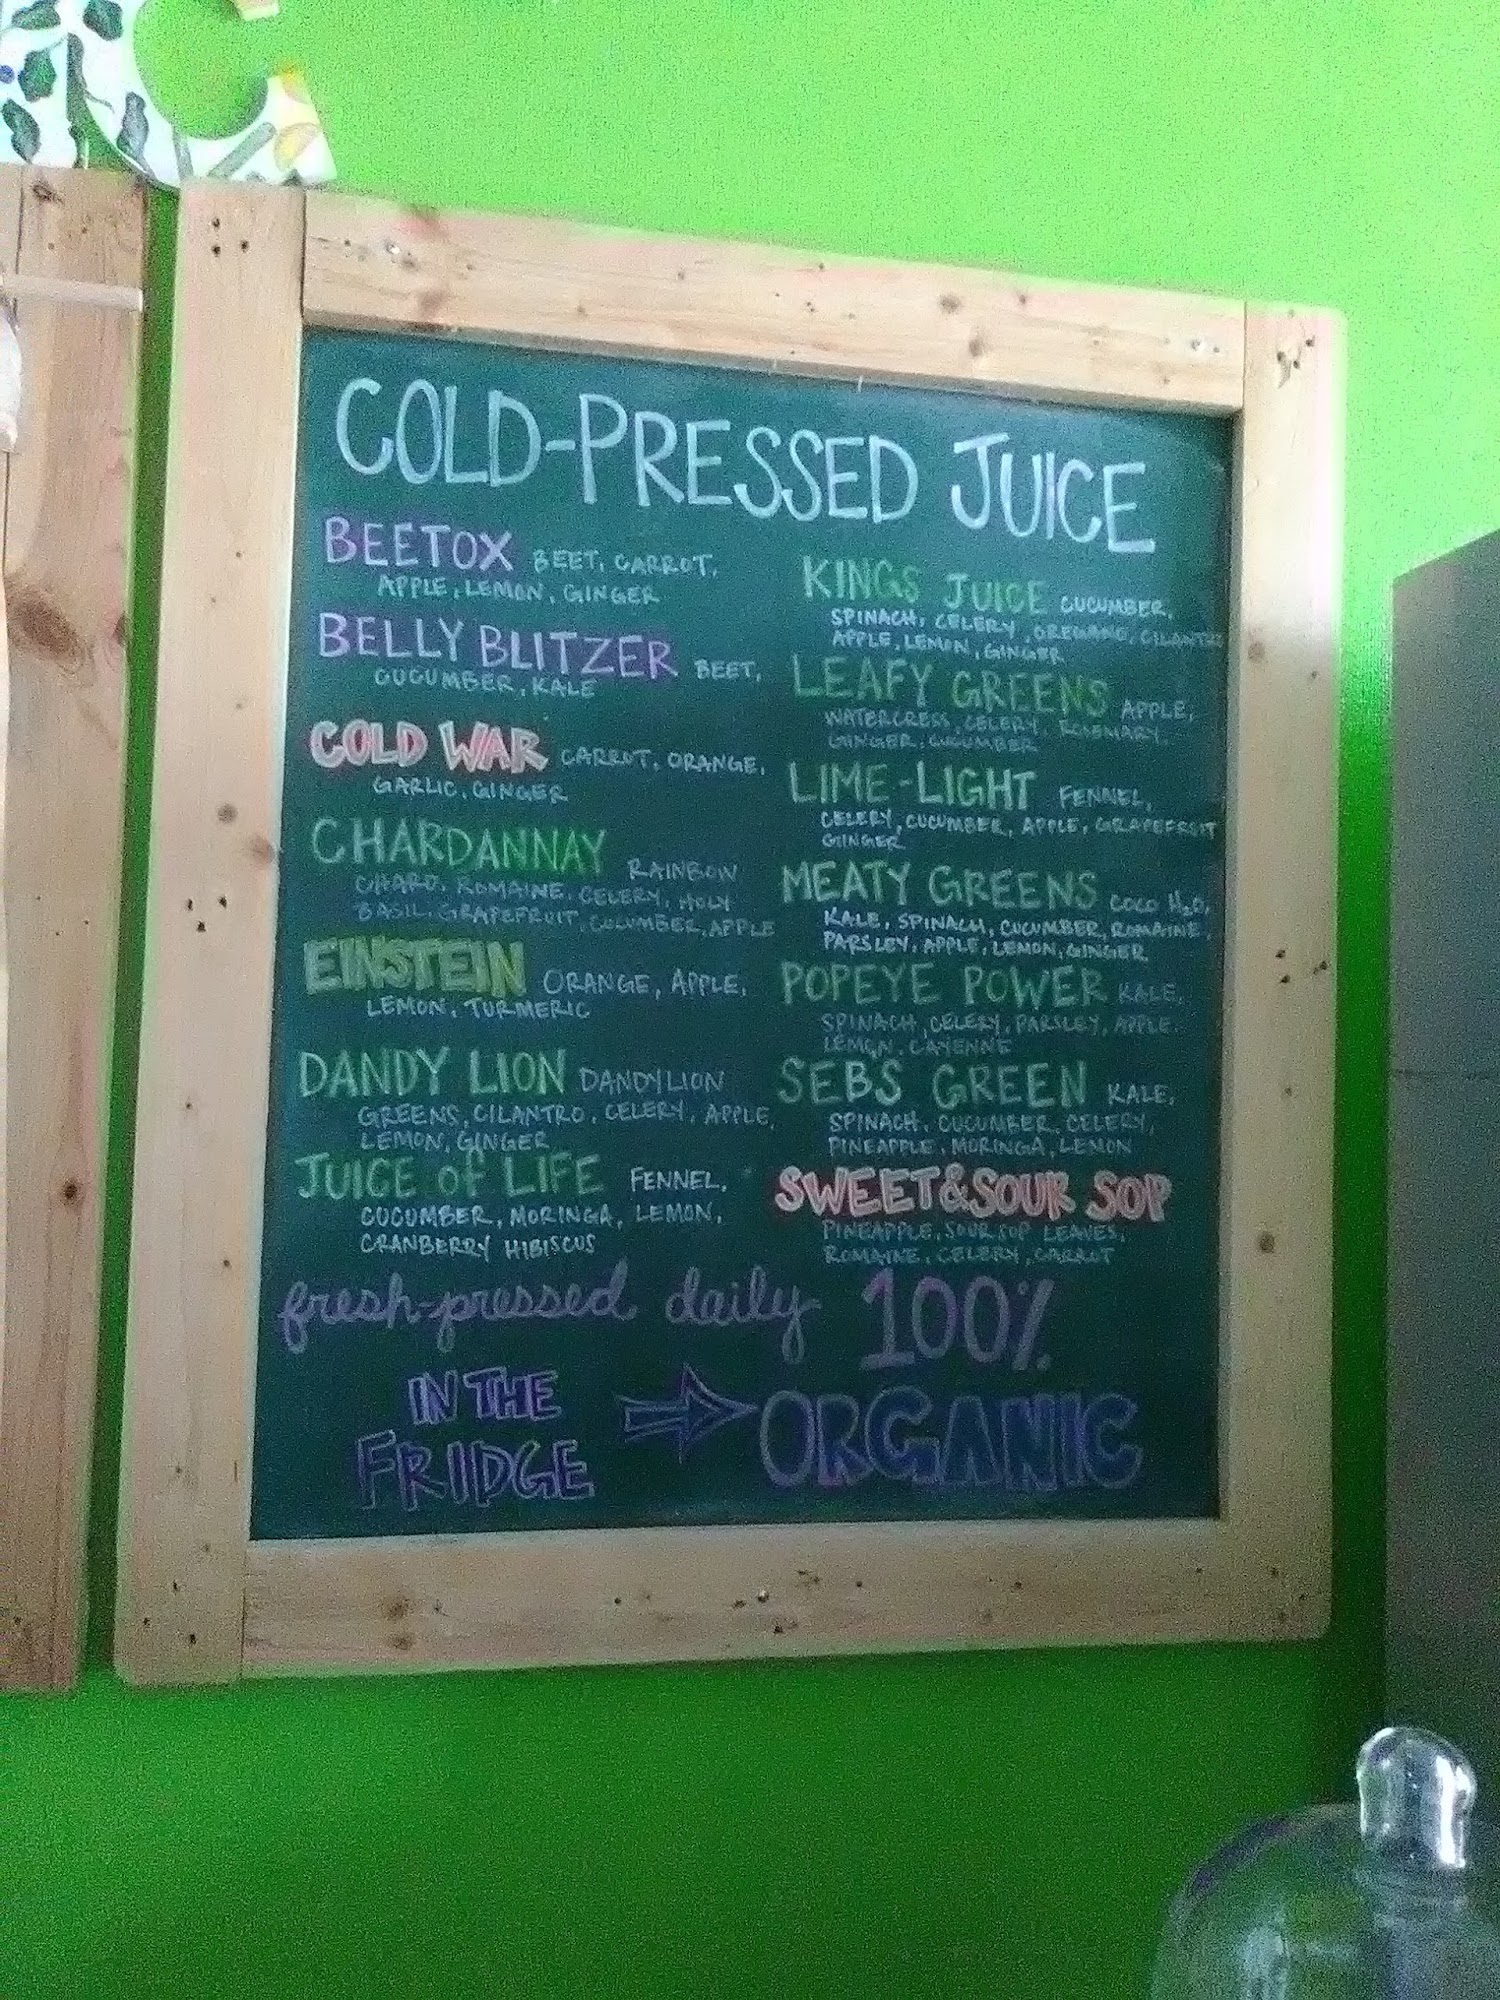 COLD-PRESSED JUICE
BEETOX BEET, CARROT,
APPLE, LEMON, GINGER
BELLY BLITZER BEET,
CUCUMBER, KALE
COLD WAR CARROT, ORANGE,
GARLIC, GINGER
CHARDANNAY RAINBOW
CHARD, ROMAINE, CELERY, HOLY
BASIL, GRAPEFRUIT, CUCUMBER, APPLE
EINSTEIN ORANGE, APPLE,
LEMON, TURMERIC
DANDY LION DANDYLION
GREENS, CILANTRO, CELERY, APPLE,
LEMON, GINGER
JUICE OF LIFE FENNEL,
CUCUMBER, MORINGA, LEMON,
CRANBERRY HIBISCUS
KINGS JUICE CUCUMBER,
SPINACH, CELERY, OREGANO, CILANTRO
APPLE, LEMON, GINGER
LEAFY GREENS APPLE,
WATERCRESS, CELERY, ROSEMARY,
GINGER, CUCUMBER
LIME-LIGHT FENNEL,
CELERY, CUCUMBER, APPLE, GRAPEFRUIT
GINGER
MEATY GREENS COCO H2O,
KALE, SPINACH, CUCUMBER, ROMAINE,
PARSLEY, APPLE, LEMON, GINGER
POPEYE POWER KALE,
SPINACH, CELERY, PARSLEY, APPLE,
LEMON, CAYENNE
SEBS GREEN KALE,
SPINACH, CUCUMBER, CELERY,
PINEAPPLE, MORINGA, LEMON
SWEET & SOUR SOP
PINEAPPLE, SOUR SOP LEAVES,
ROMAINE, CELERY, CARROT
fresh-pressed daily 100%
IN THE
FRIDGE
ORGANIC